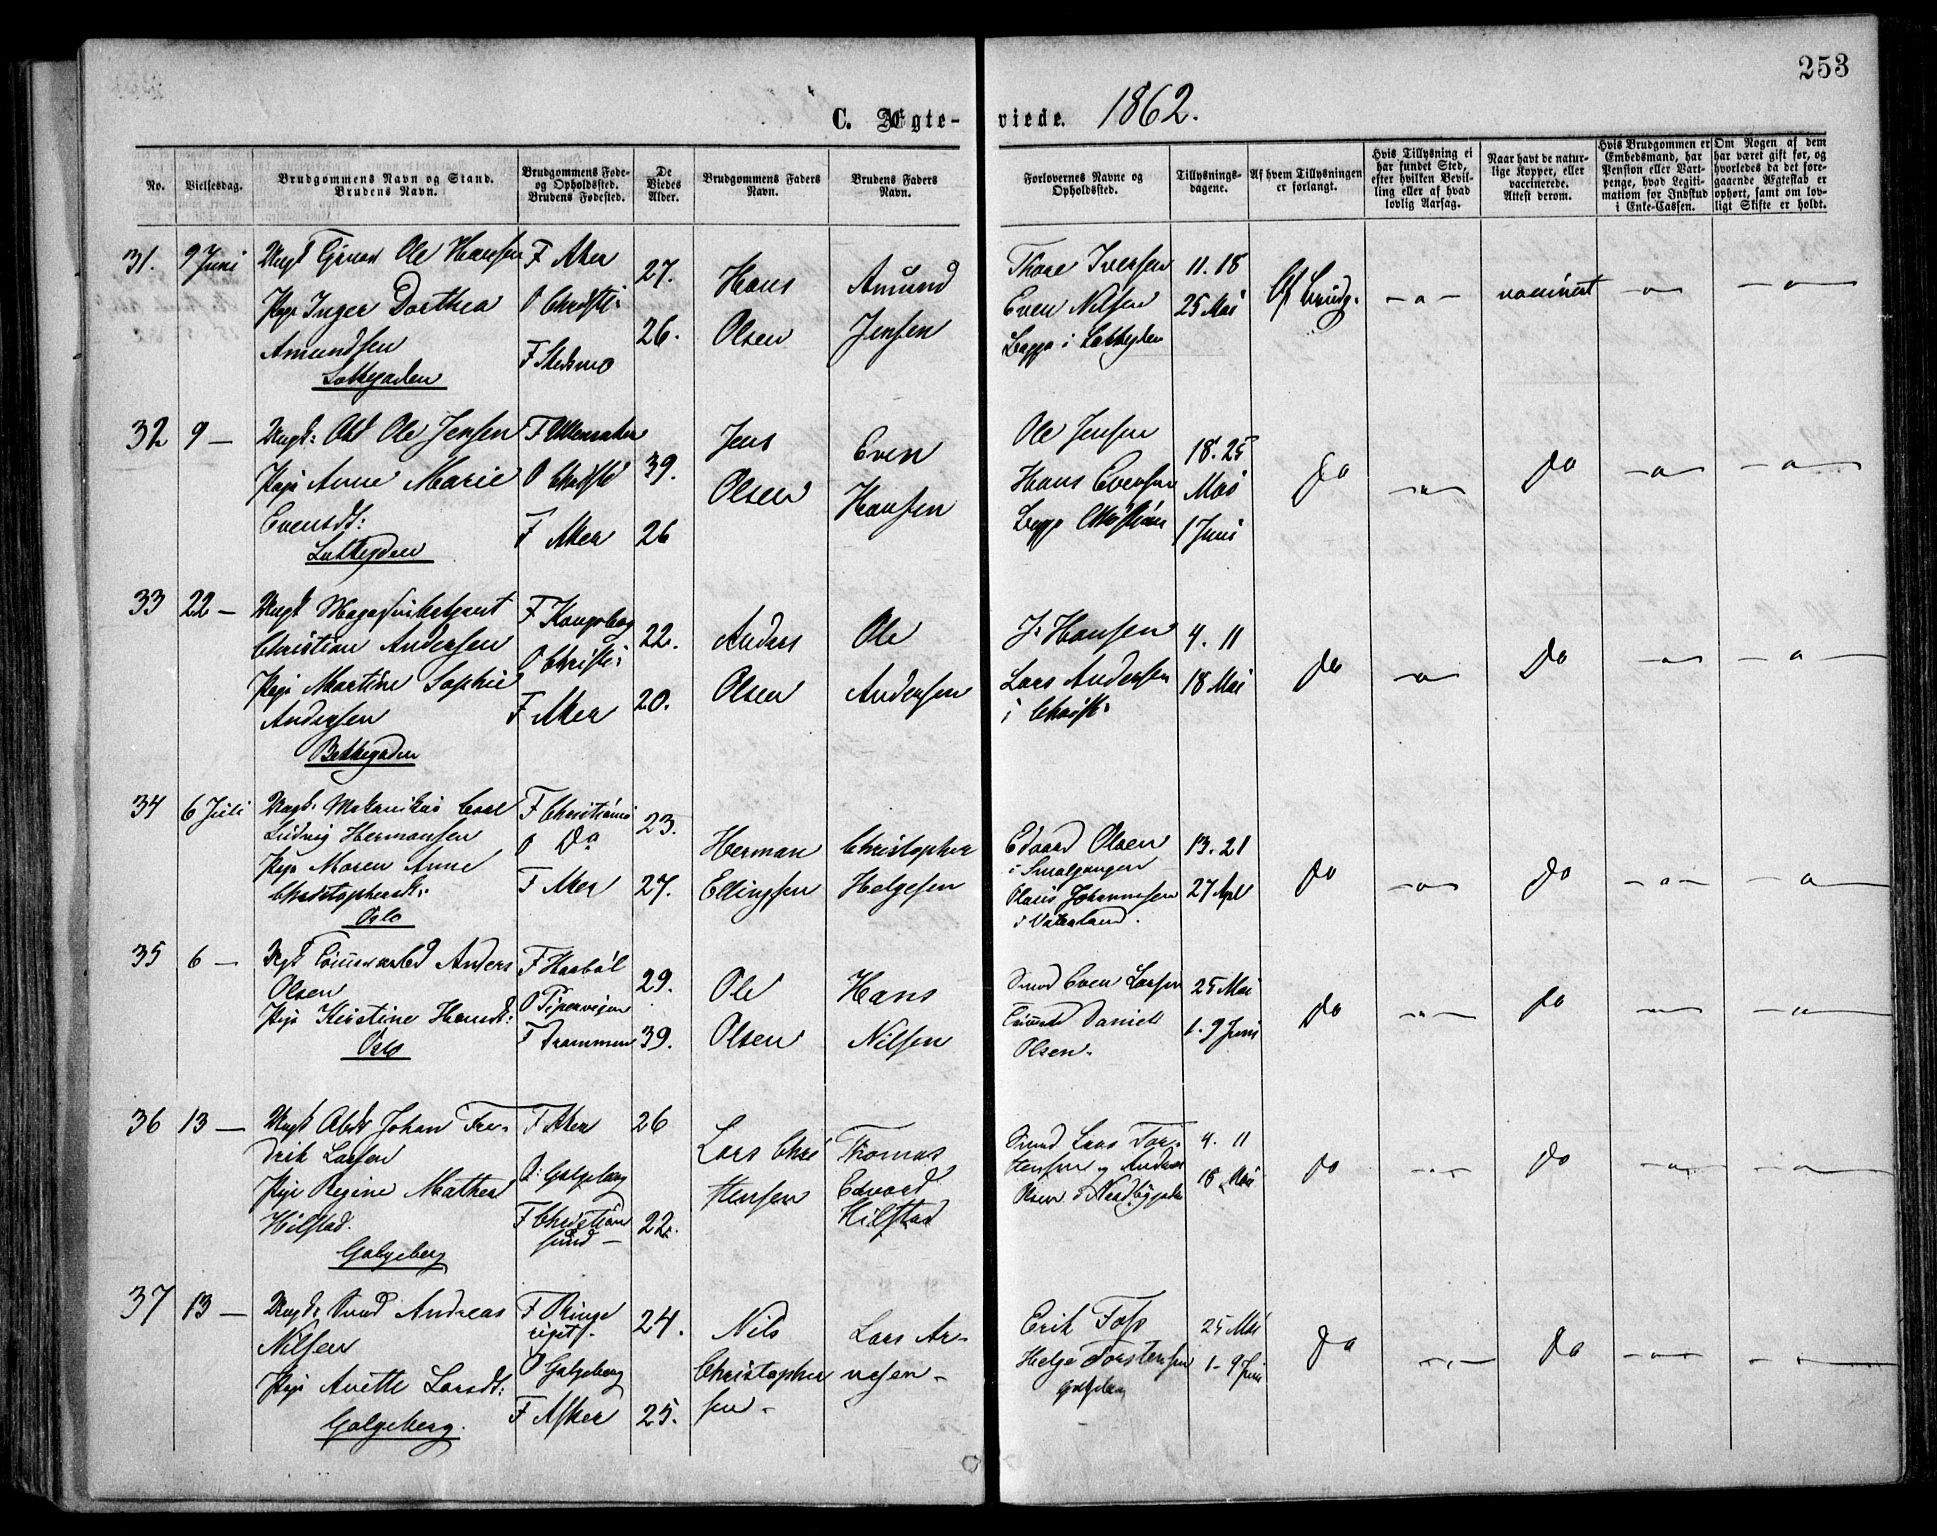 253
C. Ægte- viede. 1862.
No.
Vielsesdag.
Brudgommens Navn og Stand.
Brudens Navn.
Brudgommens Føde-
og Opholdssted.
Brudens Fødested.
De
Viedes
Alder.
Brudgommens Faders
Navn.
Brudens Faders
Navn.
Forlovernes Navne og
Opholdssted.
Tillysnings-
dagene.
Af hvem Tillysningen
er forlangt.
Hvis Tillysning ei
har fundet Sted,
efter hvilken Bevil-
ling eller af hvad
lovlig Aarsag.
Naar havt de natur-
lige Kopper, eller
vaccinerede.
Attest derom.
Hvis Brudgommen er
Embedsmand, har
Pension eller Vart-
penge, hvad Legiti-
mation for Indskud
i Enke-Cassen.
Om Nogen af dem
har været gift før, og
hvorledes da det fore-
gaaende Ægteskab er
ophørt, samt om lov-
ligt Skifte er holdt.
31. 9 Juni
Ungk Ole Hansen
Pige Inger Dorthea
Amundsen
Lakkegaden
F Aker
O Christi:
F Skedsmo
27.
26.
Hans
Olsen
Amund
Jensen
Thore Iversen
Even Nilsen
Begge i Lakkegden
11. 18
25 Mai
Af Brudg.
— o —
vaccinert
— o —
— o —
32 9 —
Ungk: Abd Ole Jensen
Pige Anne Marie
Evensdt:
Lakkegden
F Ullensaker
O Christi
F Aker
39.
26
Jens
Olsen
Even
Hansen
Ole Jensen
Hans Evensen
Begge Christiania
18. 25
Mai
1 Juni
Do
— o —
Do
— o —
— o —
33 22 —
Ungk
Christian Andersen
Pige Martine Sophie
Andersen
Bakkegaden
F Kongsberg
O Christi:
F Aker
22.
20.
Anders
Olsen
Ole
Andersen
J. Hansen
Lars Andersen
i Christi
4. 11
18 Mai
Do
— o —
Do
— o —
— o —
34 6 Juli
Ungk: Mekanikus Carl
Ludvig Hermansen
Pige Maren Anne
Christophersdt:
Oslo
F Christiania
O Do
F Aker
23.
27.
Herman
Ellingsen
Christopher
Helgesen
Edvard Olsen
i Smalgangen
Olaus Johannesen
i Vaterland.
13. 21
27 Apl
Do
— o —
Do
— o —
— o —
35 6 —
Ungk Anders
Olsen
Pige Kirstine Hansdt:
Oslo
F Haabøl
O Pipervigen
F Drammen
29.
39.
Ole
Olsen
Hans
Nilsen
Smed Even Larsen
Daniel
Olsen.
25 Mai
1. 9 Juni
Do
— o —
Do
— o —
— o —
36 13 —
Ungk Abdr Johan Fre-
drik Larsen
Pige Regine Mathea
Hilstad.
Galgeberg
F Aker
O: Galgeberg
F Christian
sund —
26
22.
Lars Chri
stensen
Thomas
Edvard
Hilstad
Smed Lars Tor-
stensen og Andreas
Olsen i Nordbygaden
4. 11
18 Mai
Do
— o —
Do
— o —
— o —
37 13 —
Ungk: Smed Andreas
Nilsen
Pige Anette Larsdt:
Galgeberg.
F Ringe
riget.
O Galgeberg
F Asker
24.
25.
Nils
Christopher
sen -
Lars Ar-
nesen -
Erik Foss
Helge Torstensen
Galgeberg
25 Mai
1- 9 Juni
Do
— o —
Do
— o —
— o —